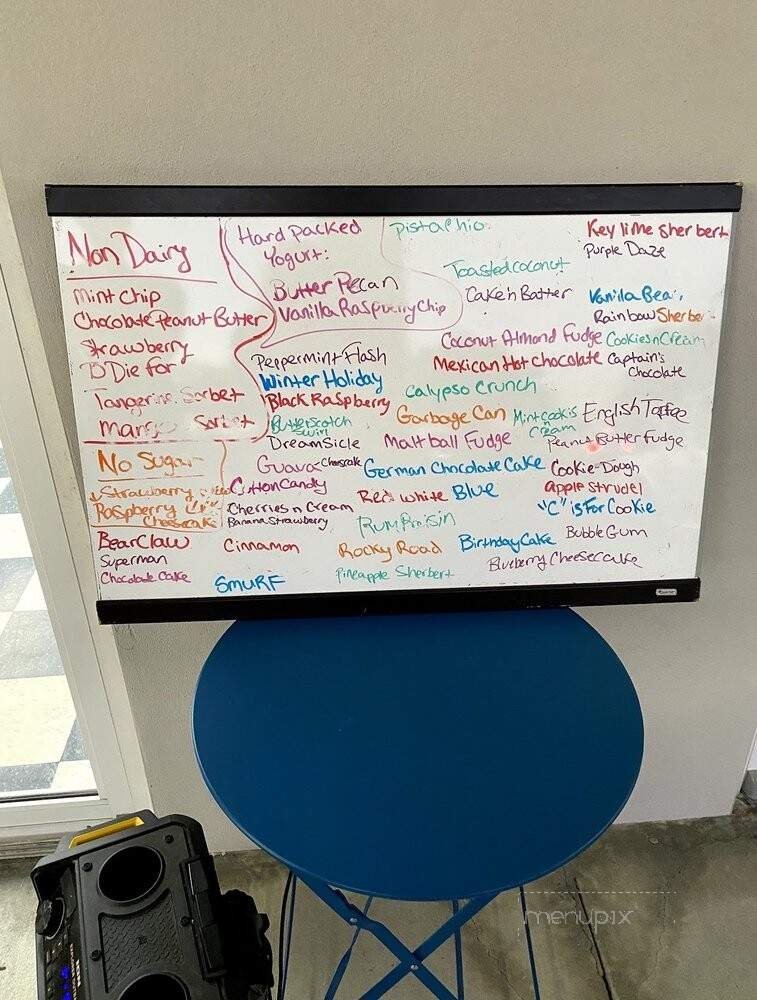 Non Dairy
Mint Chip
Chocolate Peanut Butter
Strawberry
To Die for
Tangerine Sorbet
Mango Sorbet
No Sugar
Strawberry
Raspberry
Cheesecake
BearClaw
Superman
Chocolate Cake
Hard Packed
Yogurt:
Butter Pecan
Vanilla Raspberry Chip
Peppermint Flash
Winter Holiday
Black Raspberry
Butterscotch
Swirl
DreamSicle
Guava Cheesecake
Cotton Candy
Cherries n Cream
Banana Strawberry
Cinnamon
SMURF
Pistachio
Toasted coconut
Cake n Batter
Coconut Almond Fudge
Mexican Hot chocolate
Calypso Crunch
Garbage Can
Mint cookis
n cream
Malt ball Fudge
German Chocolate Cake
Red White Blue
Rum Raisin
Rocky Road
Birthday Cake
Pineapple Sherbert
Blueberry Cheesecake
Key lime Sherbert
Purple Daze
Vanilla Bean
Rainbow Sherbe
Cookies n Cream
Captain's
Chocolate
English Toffee
Peanut Butter Fudge
Cookie-Dough
apple strudel
"C" is For Cookie
Bubble Gum
menupix